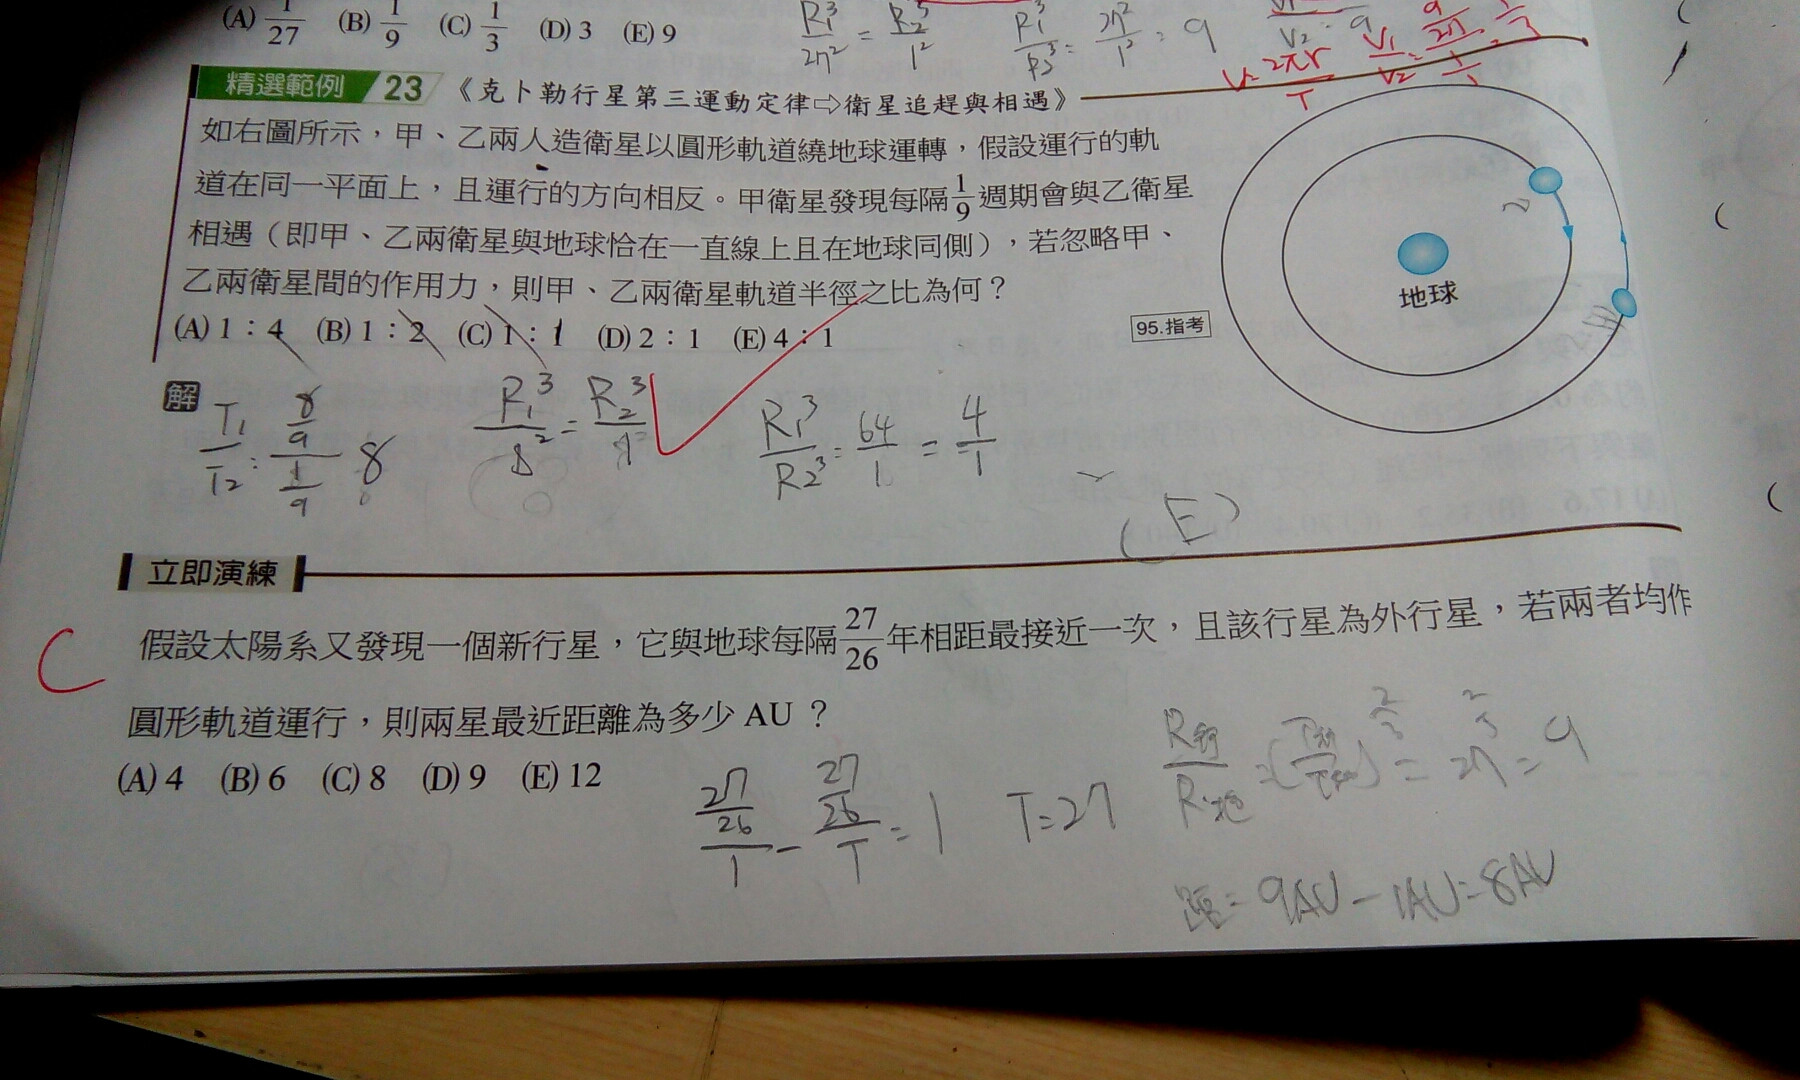 (A) 1/27 (B) 1/9 (C) 1/3 (D) 3 (E) 9
R₁³/27² = R₂³/1² R₁³/R₂³ = 27²/1² = 9
V = 2πr/T V₁/V₂ = 9/27 / 1/1 = 1/3
精選範例 23 《克卜勒行星第三運動定律⇨衛星追趕與相遇》
如右圖所示，甲、乙兩人造衛星以圓形軌道繞地球運轉，假設運行的軌
道在同一平面上，且運行的方向相反。甲衛星發現每隔1/9週期會與乙衛星
相遇（即甲、乙兩衛星與地球恰在一直線上且在地球同側），若忽略甲、
乙兩衛星間的作用力，則甲、乙兩衛星軌道半徑之比為何？
(A) 1：4 (B) 1：2 (C) 1：1 (D) 2：1 (E) 4：1
95.指考
地球
乙
甲
解 T₁/T₂ = 8/9 / 1/9 8 R₁³/8² = R₂³/1² R₁³/R₂³ = 64/1 = 4/1
(E)
立即演練
C 假設太陽系又發現一個新行星，它與地球每隔27/26年相距最接近一次，且該行星為外行星，若兩者均作
圓形軌道運行，則兩星最近距離為多少 AU？
(A) 4 (B) 6 (C) 8 (D) 9 (E) 12
27/26 / 1 - 27/26 / T = 1 T = 27 = 27^2/3 = 9
= 9AU - 1AU = 8AU